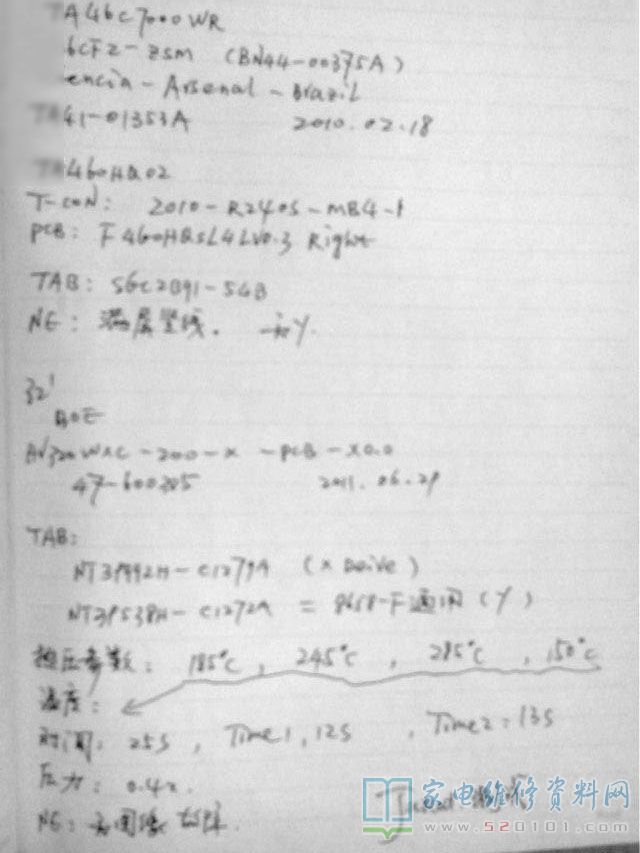 A46C7000WR
6CF2-ZSM (BN44-00375A)
encia-Arsenal-Brazil
41-01353A 2010.02.18
460HQ02
T-CON: 2010-R240S-MB4-1
PCB: F460HQSL4LV0.3 Right
TAB: S6C2B91-54B
NG: 满屏竖线.
32'
BOE
AV320WXC-200-X-PCB-X0.0
47-600305 2011.06.29
TAB:
NT39992H-C1279A (X Drive)
NT39538H-C1272A = 8658-F通用(Y)
热压参数: 185°C, 245°C, 285°C, 150°C
温度:
时间: 25S, Time1, 12S, Time2: 13S
压力: 0.42.
NG:
家电维修资料网
www.520101.com